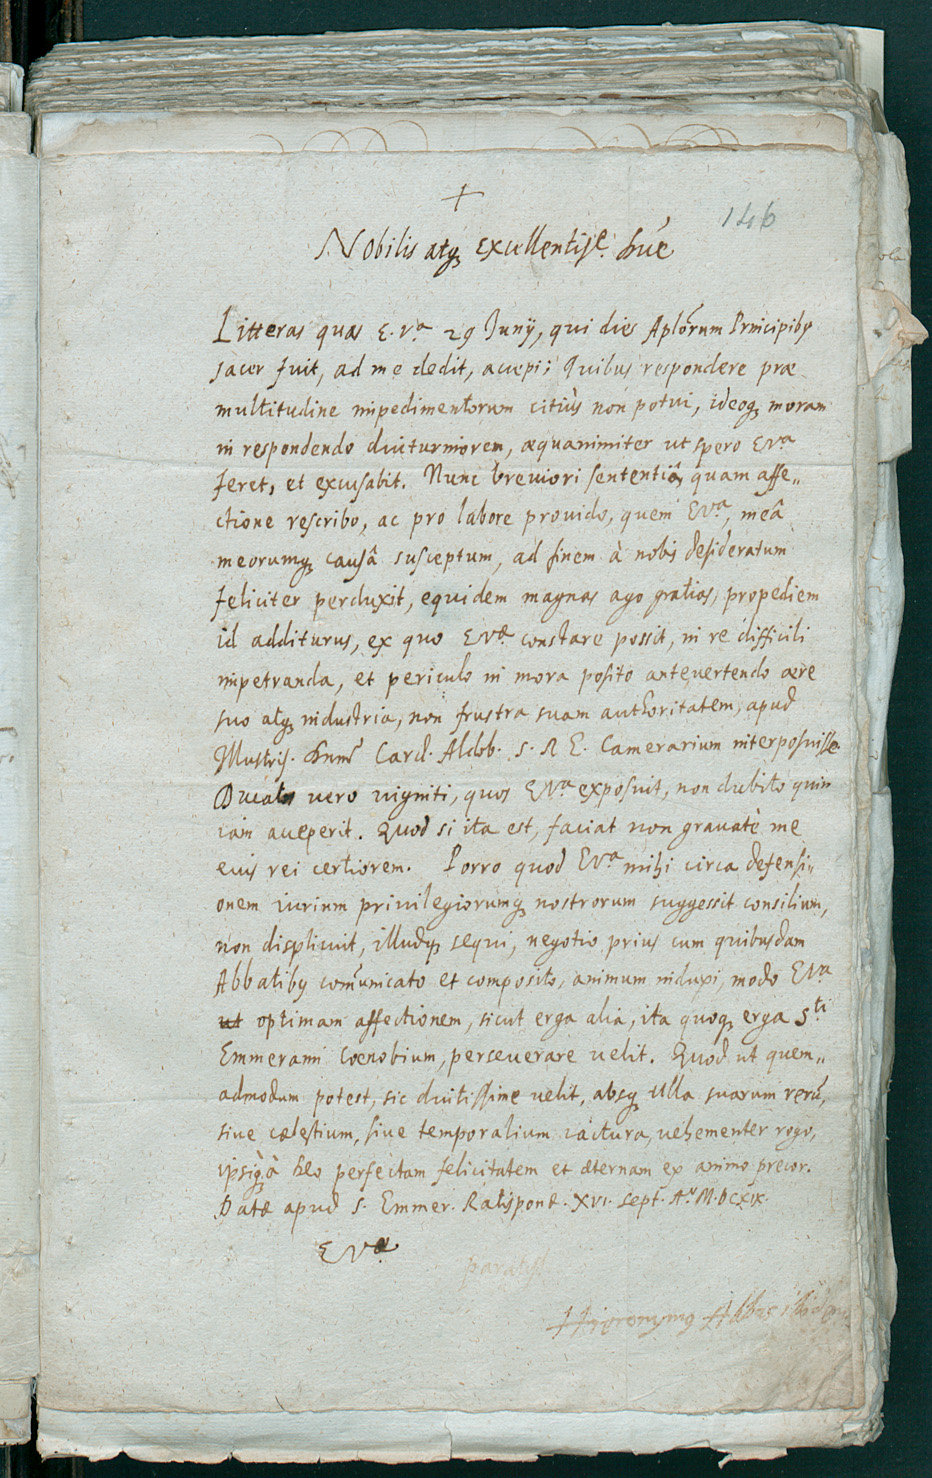 146
Nobilis atq Excellentiss.e Dn̄e
Litteras quas E.V.a 29 Junij, qui dies Aplōrum Principibq
sacer fuit, ad me dedit, accepi; Quibus respondere præ
multitudine impedimentorum citiùs non potui, ideoq moram
in respondendo diuturniorem, æquanimiter ut spero EVa
feret, et excusabit. Nunc breuiori sententiâ, quam affe„
ctione rescribo, ac pro labore prouido, quem EVa, meâ
meorumq causâ susceptum, ad finem à nobis desideratum
feliciter perduxit, equidem magnas ago gratias, propediem
id additurus, ex quo EVæ constare possit, in re difficili
impetranda, et periculo in mora posito anteuertendo ære
suo atq industria, non frustra suam authoritatem, apud
Illustriss. Dnm̄ Card. Aldob. S. R E. Camerarium interposuisse.
Ducatos vero viginti, quos EVa exposuit, non dubito quin
iam acceperit. Quod si ita est, faciat non grauatè me
eius rei certiorem. Porro quod EVa mihi circa defensi„
onem iurium priuilegiorumq nostrorum suggessit consilium,
non displicuit, illudq sequi, negotio prius cum quibusdam
Abbatibq com̄unicato et composito, animum induxi, modo EVa
ut optimam affectionem, sicut erga alia, ita quoq erga S.ti
Emmerami Cœnobium, perseuerare velit. Quod ut quem„
admodum potest, sic diutissime velit, absq ulla suarum rerū,
siue cælestium, siue temporalium iactura, vehementer rogo,
ipsiq à Deo perfectam felicitatem et æternam ex animo precor.
Datæ apud S. Emmer. Ratisponæ. XVI. Sept. Ao M.DCXIX.
EVæ
paratiss
Hieronymq Abbas ibidem